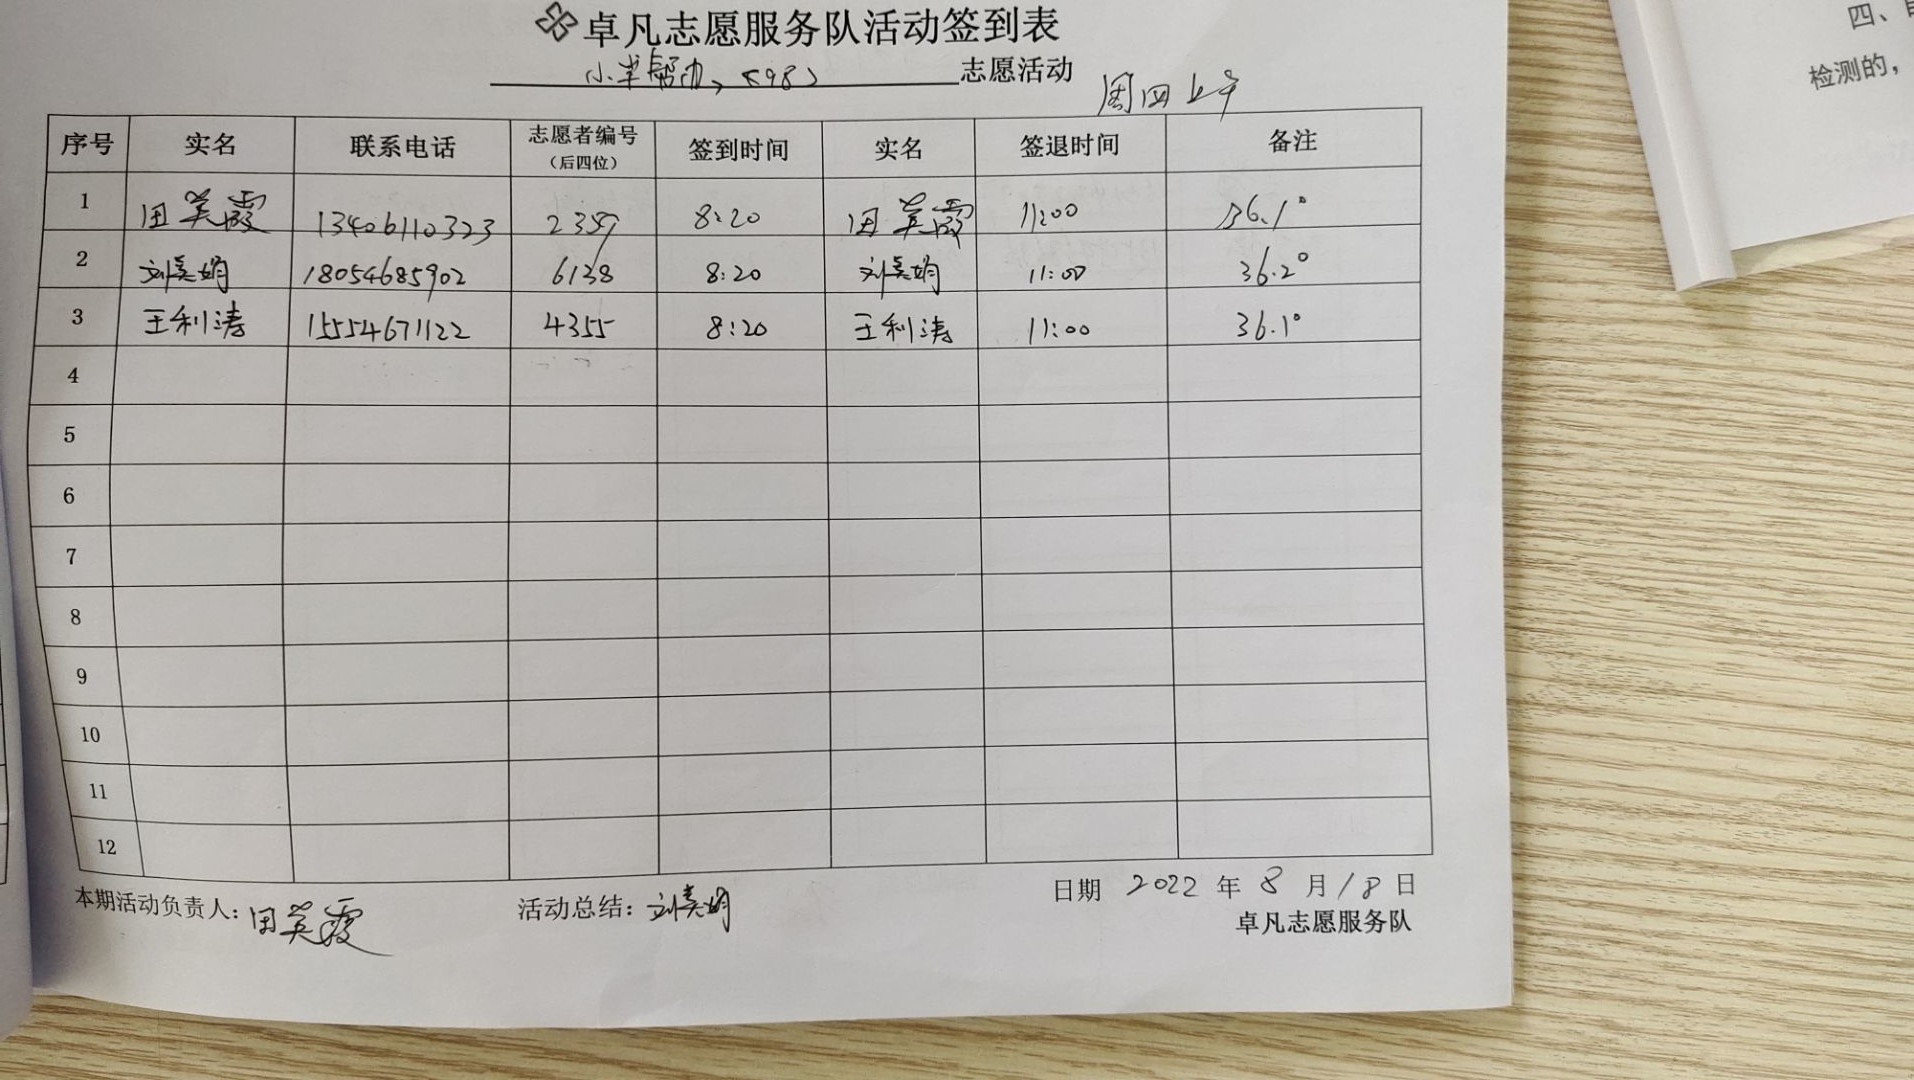 卓凡志愿服务队活动签到表
小羊帮办、<98> 志愿活动
周四上午
序号 实名 联系电话 志愿者编号（后四位） 签到时间 实名 签退时间 备注
1 田英霞 13406110323 2359 8:20 田英霞 11:00 36.1°
2 刘美娟 18054685902 6138 8:20 刘美娟 11:00 36.2°
3 王利涛 15554671122 4355 8:20 王利涛 11:00 36.1°
4
5
6
7
8
9
10
11
12
本期活动负责人：田英霞 活动总结：刘美娟 日期 2022 年 8 月 18 日
卓凡志愿服务队
四、
检测的，